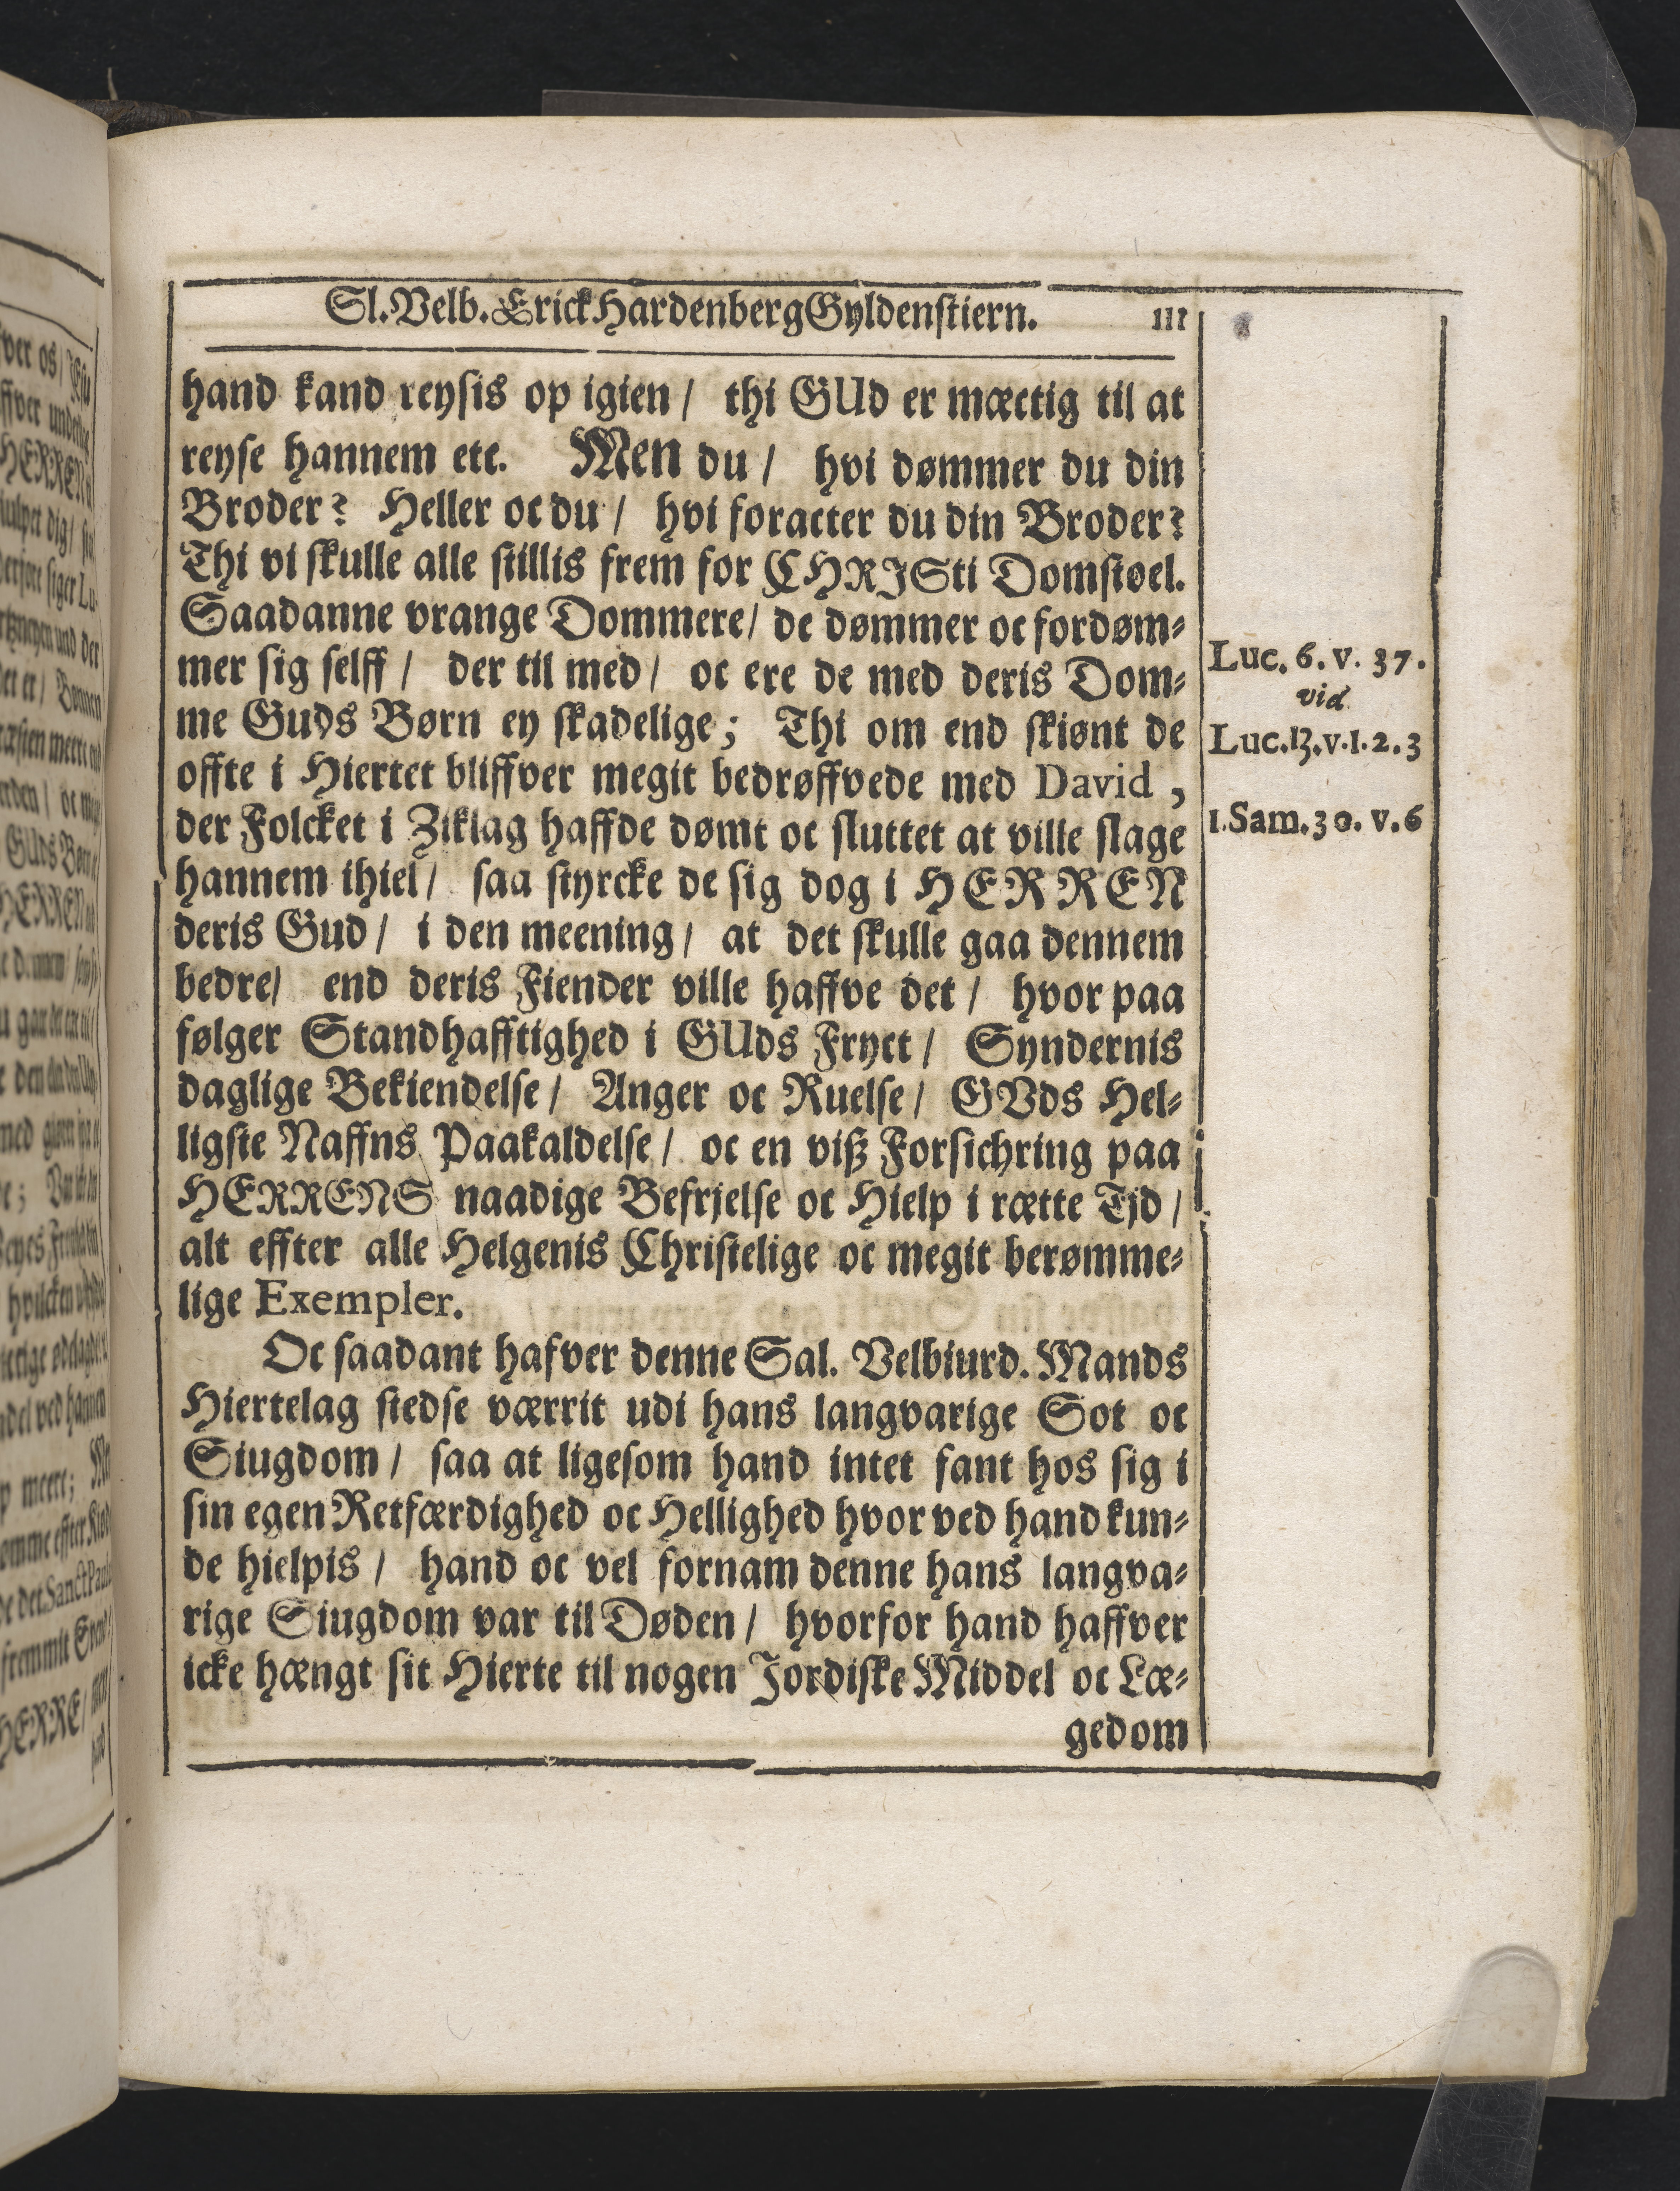 Sl. Velb. Erick Hardenberg Gyldenstiern. 111
hand kand reysis op igien / thi GUd er mæctig til at
reyse hannem etc. Men du / hvi dømmer du din
Broder? Heller oc du / hvi foracter du din Broder?
Thi vi skulle alle stillis frem for CHRISti Domstoel.
Saadanne vrange Dommere / de dømmer oc fordøm⸗
mer sig selff / der til med / oc ere de med deris Dom⸗
me Guds Børn ey skadelige; Thi om end skiønt de
offte i Hiertet bliffver megit bedrøffvede med David,
der Folcket i Ziklag haffde dømt oc sluttet at ville slage
hannem ihiel / saa styrcke de sig dog i HERREN
deris Gud / i den meening / at det skulle gaa dennem
bedre / end deris Fiender ville haffve det / hvor paa
følger Standhafftighed i GUds Fryct / Syndernis
daglige Bekiendelse / Anger oc Ruelse / GVds Hel⸗
ligste Naffns Paakaldelse / oc en viß Forsichring paa
HERRENS naadige Befrjelse oc Hielp i rætte Tjd /
alt effter alle Helgenis Christelige oc megit berømme⸗
lige Exempler.
Oc saadant hafver denne Sal. Velbiurd. Mands
Hiertelag stedse værrit udi hans langvarige Sot oc
Siugdom / saa at ligesom hand intet fant hos sig i
sin egen Retfærdighed oc Hellighed hvor ved hand kun⸗
de hielpis / hand oc vel fornam denne hans langva⸗
rige Siugdom var til Døden / hvorfor hand haffver
icke hængt sit Hierte til nogen Jordiske Middel oc Læ⸗
gedom
Luc. 6. v. 37.
vid
Luc. 13. v. 1. 2. 3
1. Sam. 30. v. 6